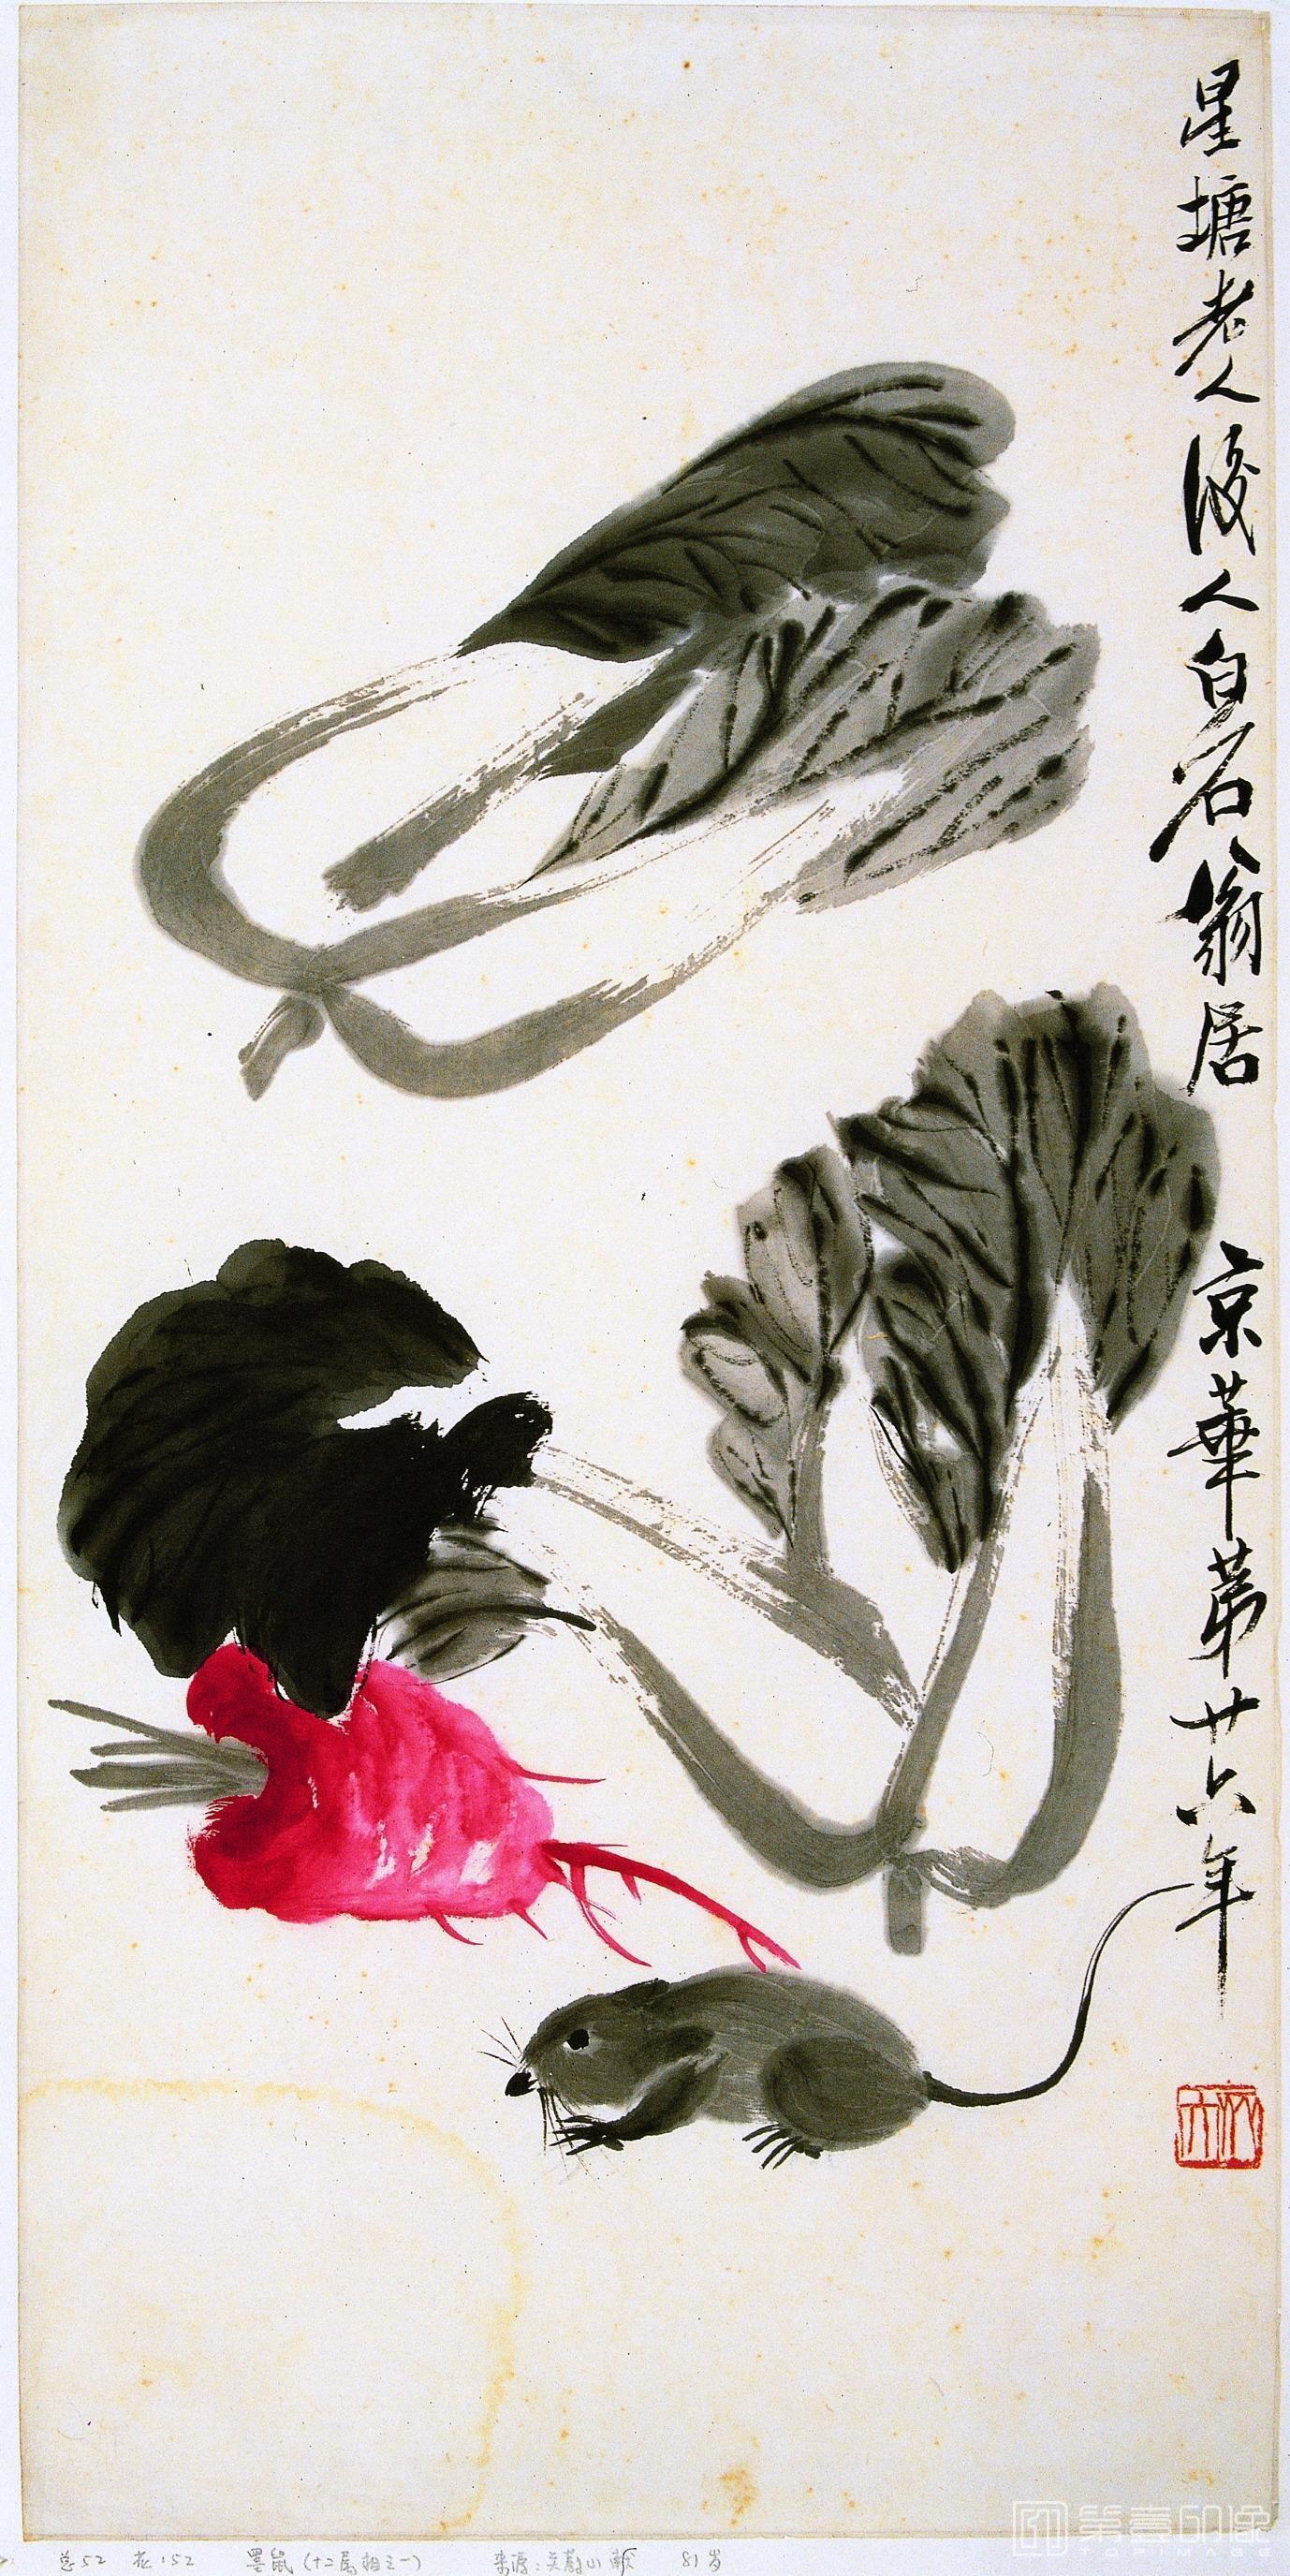 星塘老人後人白石翁居京華苐廿六年
木人
总52 花152 墨鼠(十二属相之一) 来源: 81岁
第壹印像
TOPIMAGE